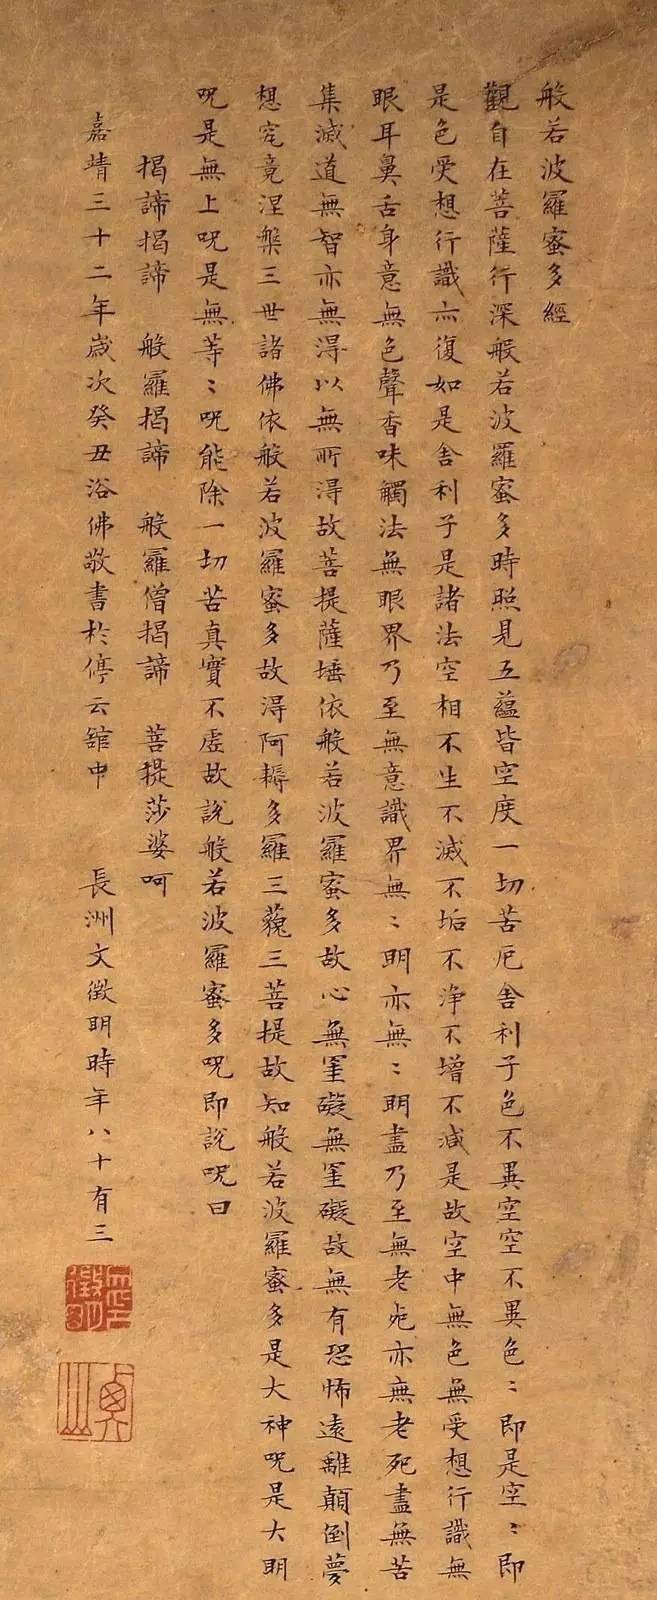 般若波羅蜜多經
觀自在菩薩行深般若波羅蜜多時照見五蘊皆空度一切苦厄舍利子色不異空空不異色〻即是空〻即
是色受想行識亦復如是舍利子是諸法空相不生不滅不垢不淨不增不減是故空中無色無受想行識無
眼耳鼻舌身意無色聲香味觸法無眼界乃至無意識界無〻明亦無〻明盡乃至無老死亦無老死盡無苦
集滅道無智亦無得以無所得故菩提薩埵依般若波羅蜜多故心無罣礙無罣礙故無有恐怖遠離顛倒夢
想究竟涅槃三世諸佛依般若波羅蜜多故得阿耨多羅三藐三菩提故知般若波羅蜜多是大神呪是大明
呪是無上呪是無等〻呪能除一切苦真實不虛故說般若波羅蜜多呪即說呪曰
揭諦揭諦 般羅揭諦 般羅僧揭諦 菩提莎婆呵
嘉靖三十二年歲次癸丑浴佛敬書於停云舘中 長洲文徵明時年八十有三
文徵明印